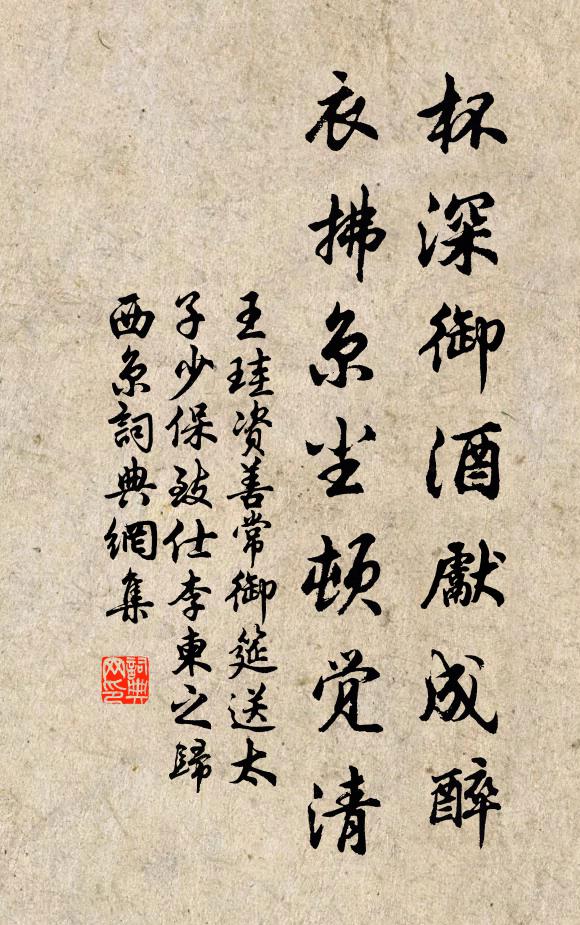 杯深御酒獻成醉
衣拂京尘顿觉清
王珪资善常御筵送太
子少保致仕李東之歸
西京詞典網集
詞典
网印